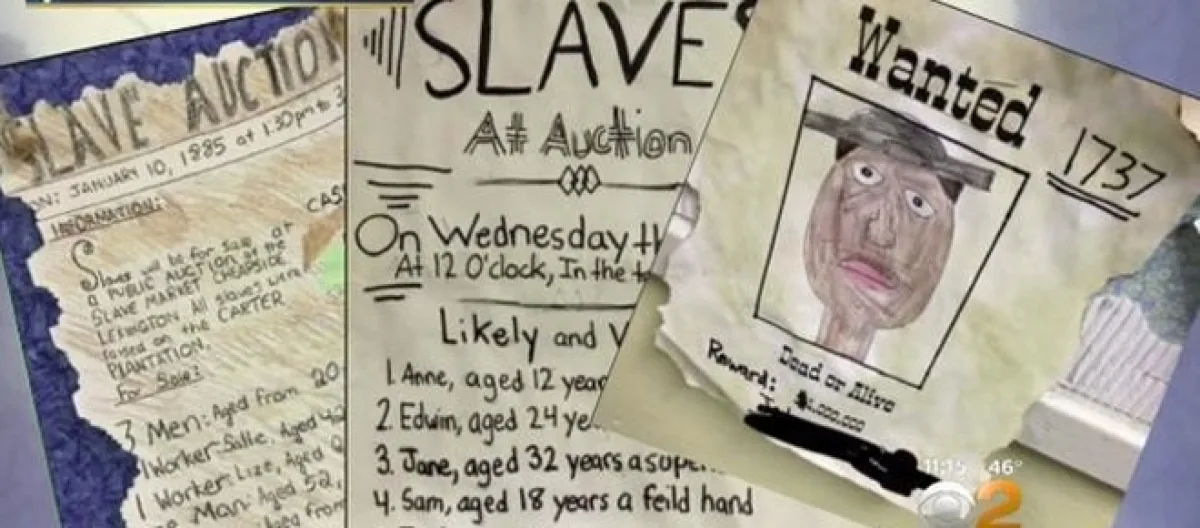 SLAVE AUCTION
ON: JANUARY 10, 1885 at 1.30pm to 3
INFORMATION:
CAS
Slaves will be for Sale at
a PUBLIC AUCTION at the
SLAVE MARKET CHEAPSIDE
LEXINGTON. All slaves were
raised on the CARTER
PLANTATION.
For Sale:
3 Men: Aged from 20
1 Worker Salle, Aged 42
1 Worker: Lize, Aged
Man: Aged 52,
from
SLAVE
At Auction
On Wednesday th
At 12 O'clock, In the
Likely and V
1. Anne, aged 12 year
2. Edwin, aged 24 ye
3. Jane, aged 32 years a supe
4. Sam, aged 18 years a feild hand
Wanted
1737
Dead or Alive
Reward:
11:15 46°
2